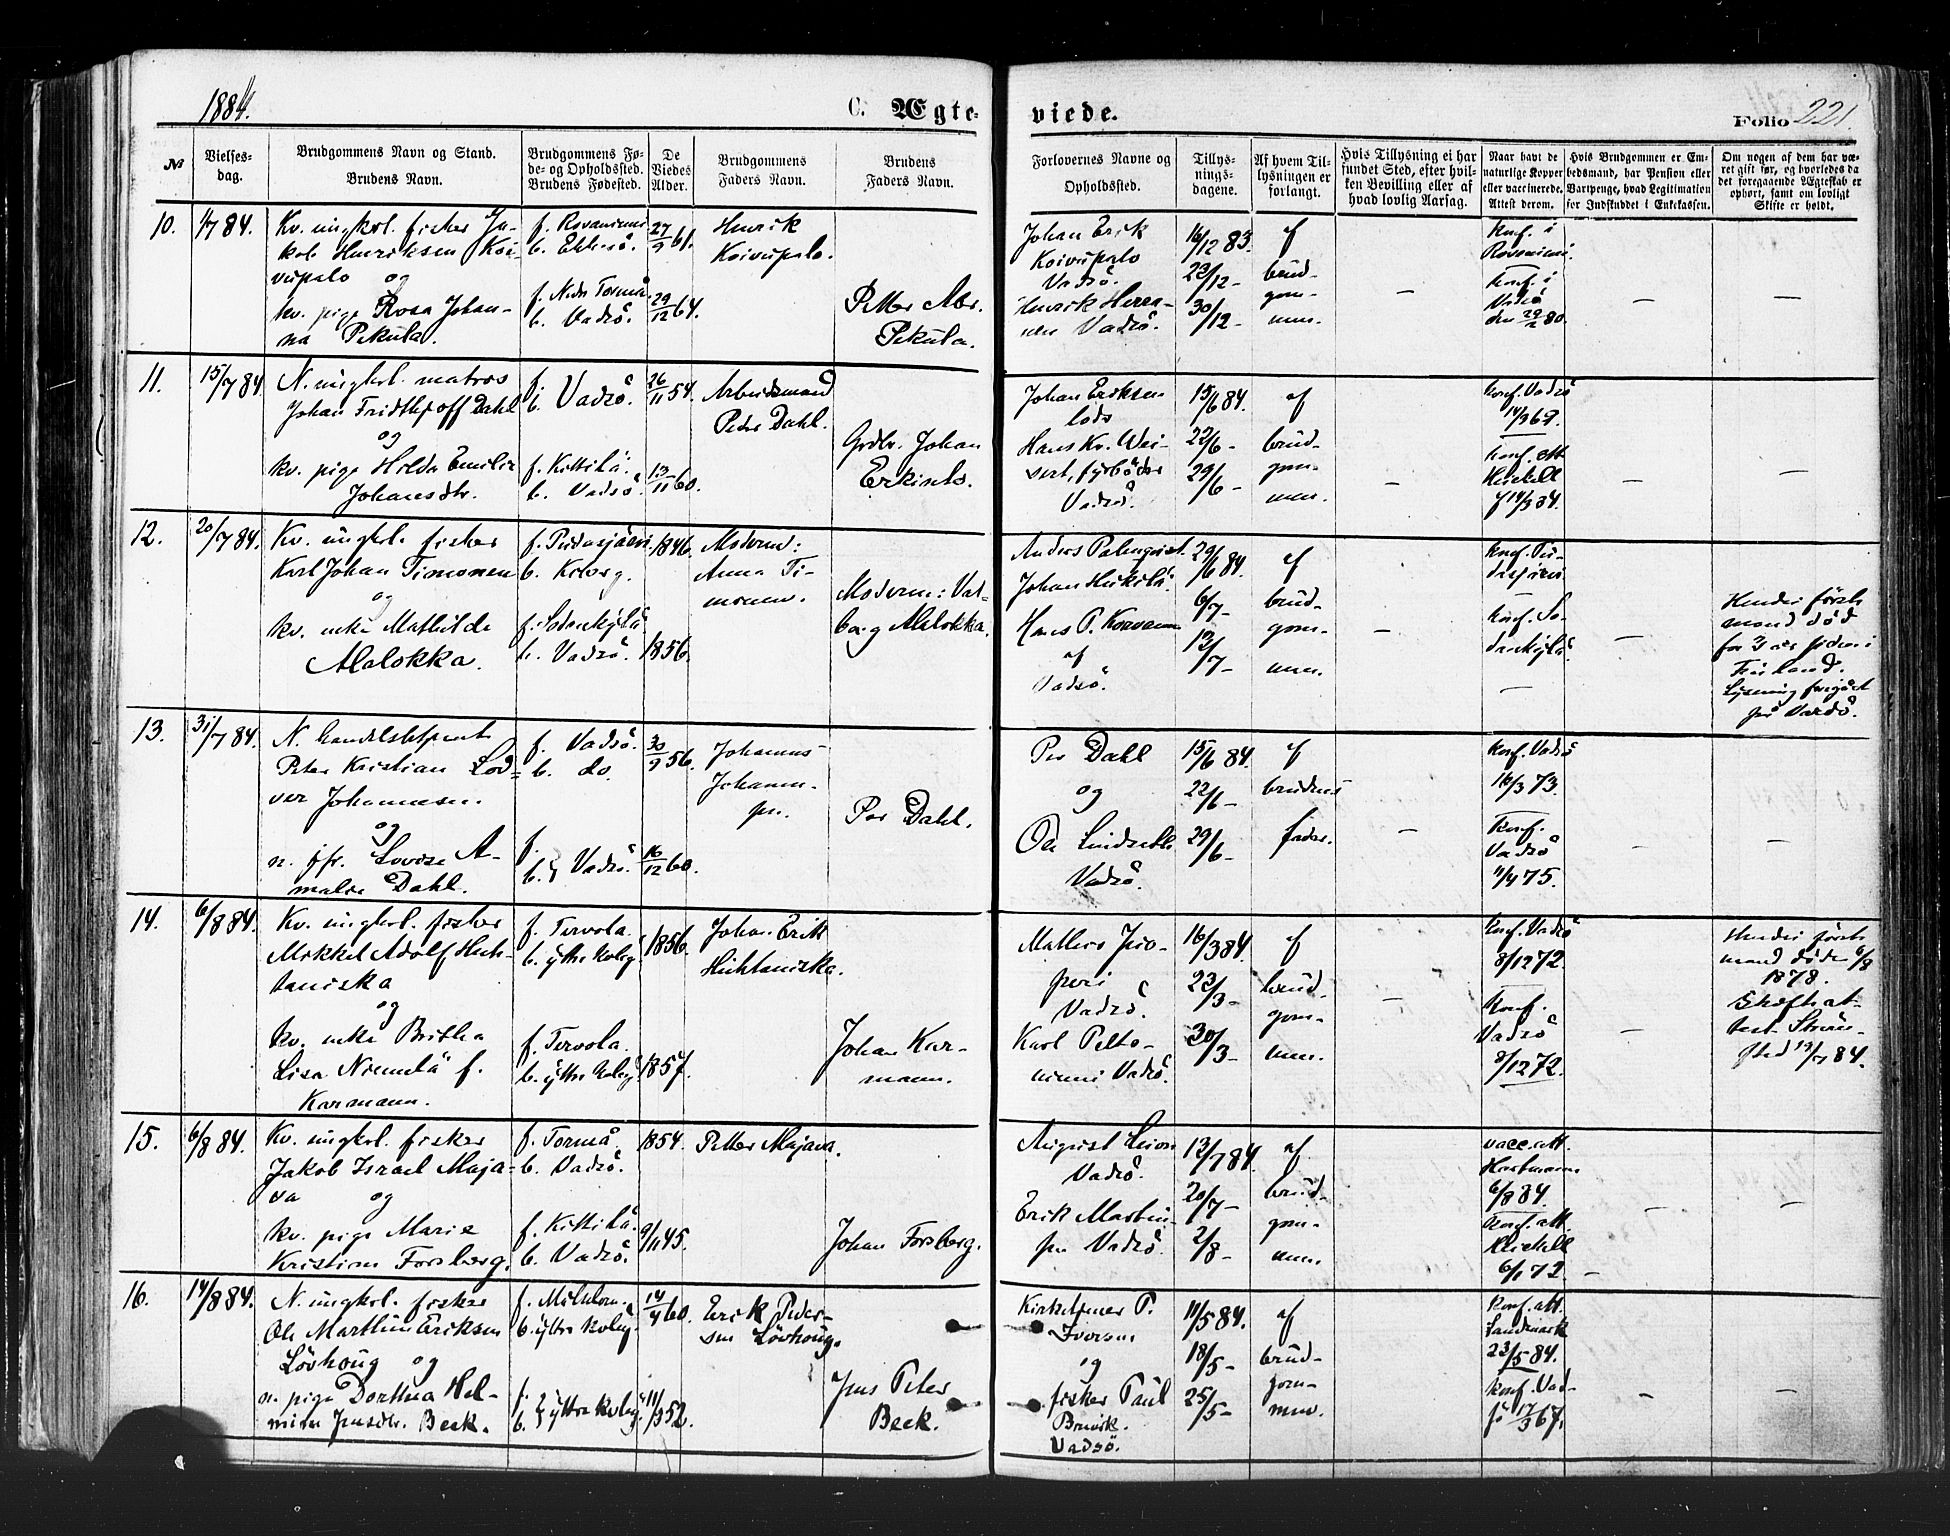 1884.
C. Ægte-
viede.
Folio 221.
No
Vielses-
dag.
Brudgommens Navn og Stand.
Brudens Navn.
Brudgommens Fø-
de- og Opholdssted.
Brudens Fødested.
De
Viedes
Alder.
Brudgommens
Faders Navn.
Brudens
Faders Navn.
Forlovernes Navne og
Opholdssted.
Tillys-
nings-
dagene.
Af hvem Til-
lysningen er
forlangt.
Hvis Tillysning ei har
fundet Sted, efter hvil-
ken Bevilling eller af
hvad lovlig Aarsag.
Naar havt de
naturlige Kopper
eller vaccinerede.
Attest derom.
Hvis Brudgommen er Em-
bedsmand, har Pension eller
Vartpenge, hvad Legitimation
for Indskuddet i Enkekassen.
Om nogen af dem har væ-
ret gift før, og hvorledes da
det foregaaende Ægteskab er
ophørt, samt om lovligt
Skifte er holdt.
10.
4/7 84.
Kv. ungkrl. fisker Ja-
kob Henriksen Koi-
vupalo og
kv. pige Rosa Johan-
na Pekula.
f. Rovaniemi
b. Ekkerö.
f. Nedr Torneå
b. Vadsö.
27/9 61.
29/12 64.
Henrik
Koivupalo.
Petter Abr.
Pekula.
Johan Erik
Koivupalo
Vadsö.
Henrik Herra-
nen Vadsö.
16/12 83.
23/12 -
30/12 -
af
brud-
gom-
men.
-
Konf. i
Rovaniemi.
Konf. i
Vadsö
den 29/2 80.
-
-
11.
15/7 84
N. ungkrl. matros
Johan Fridthjoff Dahl
og
kv. pige Hilda Emilie
Johansdtr.
f.
b. Vadsö.
f. Kittilä.
b. Vadsö.
26/11 54.
13/11 60.
Arbeidsmand
Peder Dahl.
Grdbr. Johan
Erkinks.
Johan Eriksen
lods
Hans Kr. Wei-
sert, fyrböder
Vadsö.
15/6 84.
22/6 -
29/6 -
af
brud-
gom-
men.
-
Konf. Vadsö
Konf. att
Heickell
-
-
12.
20/7 84.
Kv. ungkrl. fisker
Karl Johan Timonen
og
kv. enke Mathilde
Alalokka.
f. Pudasjärvi.
b. Kiberg.
f. Sodankylä
b. Vadsö.
1846.
1856.
Moderen:
Anna Ti-
monen.
Moderen: Val-
borg Alalokka.
Anders Palmqvist.
Johan Heikilä
Hans P. Korvanen
af
Vadsö.
29/6 84.
6/7 -
13/7 -
af
brud-
gom-
men.
-
Konf. So-
dankylä.
-
-
Hendes förste
mand död
for 3 aar siden i
Finland.
Lysning foregået
på Vardö.
13.
31/7 84.
N. handelsbetjent
Peter Kristian Lod-
ver Johannesen.
og
n. jfr. Lovise A-
malie Dahl.
f. Vadsö.
b. do.
f.
b. Vadsö.
30/9 56.
16/12 60.
Johannes
Johann-
sen.
Per Dahl.
Per Dahl
og
Ole Lindseth
Vadsö.
15/6 84.
22/6 -
29/6 -
af
brudens
fader.
-
Konf. Vadsö
16/3 73.
Konf.
Vadsö
11/4 75.
-
-
14.
6/8 84.
Kv. ungkrl. fisker
Mikkel Adolf Huh-
taniska
og
kv. enke Britha
Lisa Niemelä f.
Karmann.
f. Tervola.
b. yttre Koleg
f. Tervola.
b. yttre Koleg
1856.
1857.
Johan Erik
Huhtaniska.
Johan Kar-
mann.
Vadsö.
Karl Pelto-
niemi Vadsö.
16/3 84.
23/3 -
30/3 -
af
brud-
gom-
men.
-
Konf. Vadsö
8/12 72.
Konf.
Vadsö
8/12 72.
-
Hendes förste
mand döde 6/8
1878.
Skifteat-
test
15.
6/8 84.
Kv. ungkrl. fisker
Jakob Israel Maja-
va og
kv. pige Marie
Kristine Forsberg.
f. Torneå.
b. Vadsö.
f. Kittilä.
b. Vadsö.
1854.
9/11 45.
Petter Majava.
Johan Forsberg.
August Leion
Vadsö.
Erik Martin-
sen Vadsö.
13/7 84.
20/7 -
2/8 -
af
brud-
gom-
men.
vacc. att.
Hartmann
6/8 84.
Konf. att.
Heickell
6/1 72.
-
-
16.
14/8 84.
N. ungkrl. fisker
Ole Marthin Eriksen
Lövhoug og
n. pige Dorthea Hel-
mine Jensdtr. Beck.
b. yttre Koleg.
f.
b. yttre Koleg.
14/4 60.
11/3 52.
Erik Peder-
sen Lövhoug.
Jens Peter
Beck.
Kirketjener P.
Iversen
og
fisker Paul
Brevik
Vadsö.
11/5 84.
18/5 -
25/5 -
af
brud-
gom-
men.
Konf. att.
Landmark
23/5 84.
Konf. Vad-
sö 17/3 67.
-
-